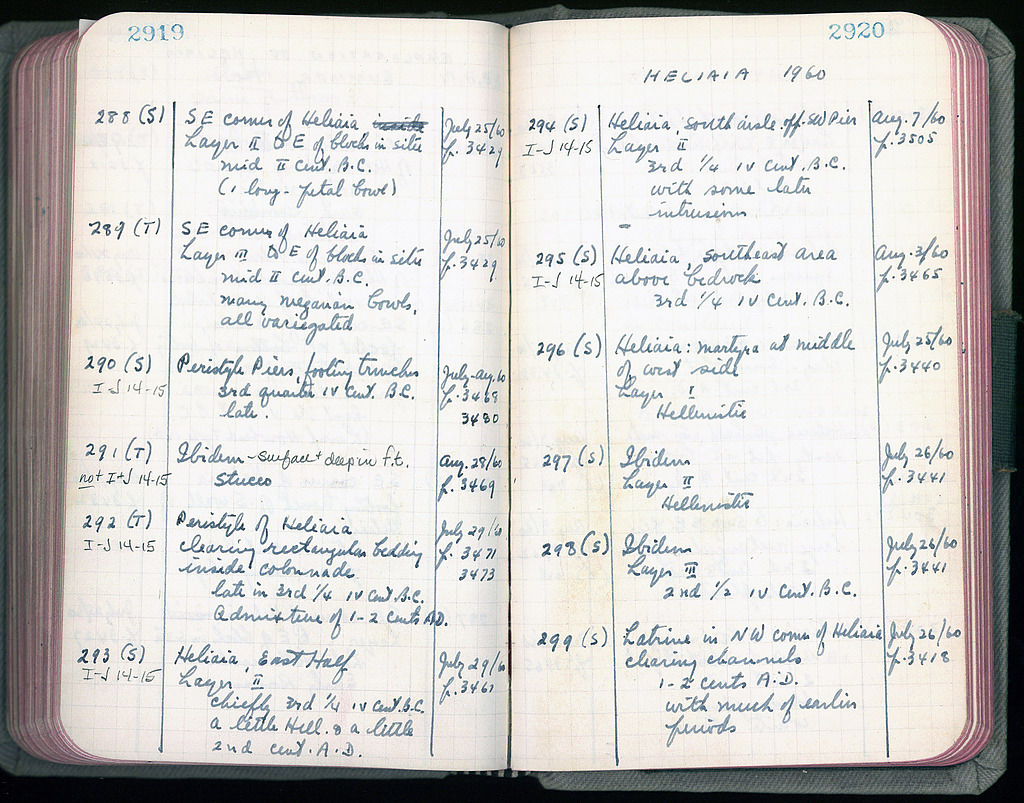 2919
288 (S) SE corner of Heliaia inside July 25/60
Layer II to E of blocks in situ p. 3429
mid II cent. B.C.
(1 long-petal bowl)
289 (T) SE corner of Heliaia July 25/60
Layer III to E of blocks in situ p. 3429
mid II cent. B.C.
many megarian bowls,
all variegated
290 (S) Peristyle Piers, footing trenches July-Aug. 60
I-J 14-15 3rd quarter IV cent. B.C. p. 3468
late. 3480
291 (T) Ibidem - surface + deep in f.t. Aug. 28/60
not I+J 14-15 stucco p. 3469
292 (T) Peristyle of Heliaia July 29/60
I-J 14-15 clearing rectangular bedding p. 3471
inside colonnade 3473
late in 3rd 1/4 IV cent. B.C.
Admixture of 1-2 cents A.D.
293 (S) Heliaia, East Half July 29/60
I-J 14-15 Layer II p. 3461
chiefly 3rd 1/4 IV cent. B.C.
a little Hell. & a little
2nd cent. A.D.
2920
HELIAIA 1960
294 (S) Heliaia, south aisle. off SW Pier Aug. 7/60
I-J 14-15 Layer II p. 3505
3rd 1/4 IV cent. B.C.
with some later
intrusions
295 (S) Heliaia, southeast area Aug. 3/60
I-J 14-15 above bedrock p. 3465
3rd 1/4 IV cent. B.C.
296 (S) Heliaia: martyra at middle July 25/60
of west side p. 3440
Layer I
Hellenistic
297 (S) Ibidem July 26/60
Layer II p. 3441
Hellenistic
298 (S) Ibidem July 26/60
Layer III p. 3441
2nd 1/2 IV cent. B.C.
299 (S) Latrine in NW corner of Heliaia July 26/60
clearing channels p. 3418
1-2 cents A.D.
with much of earlier
periods